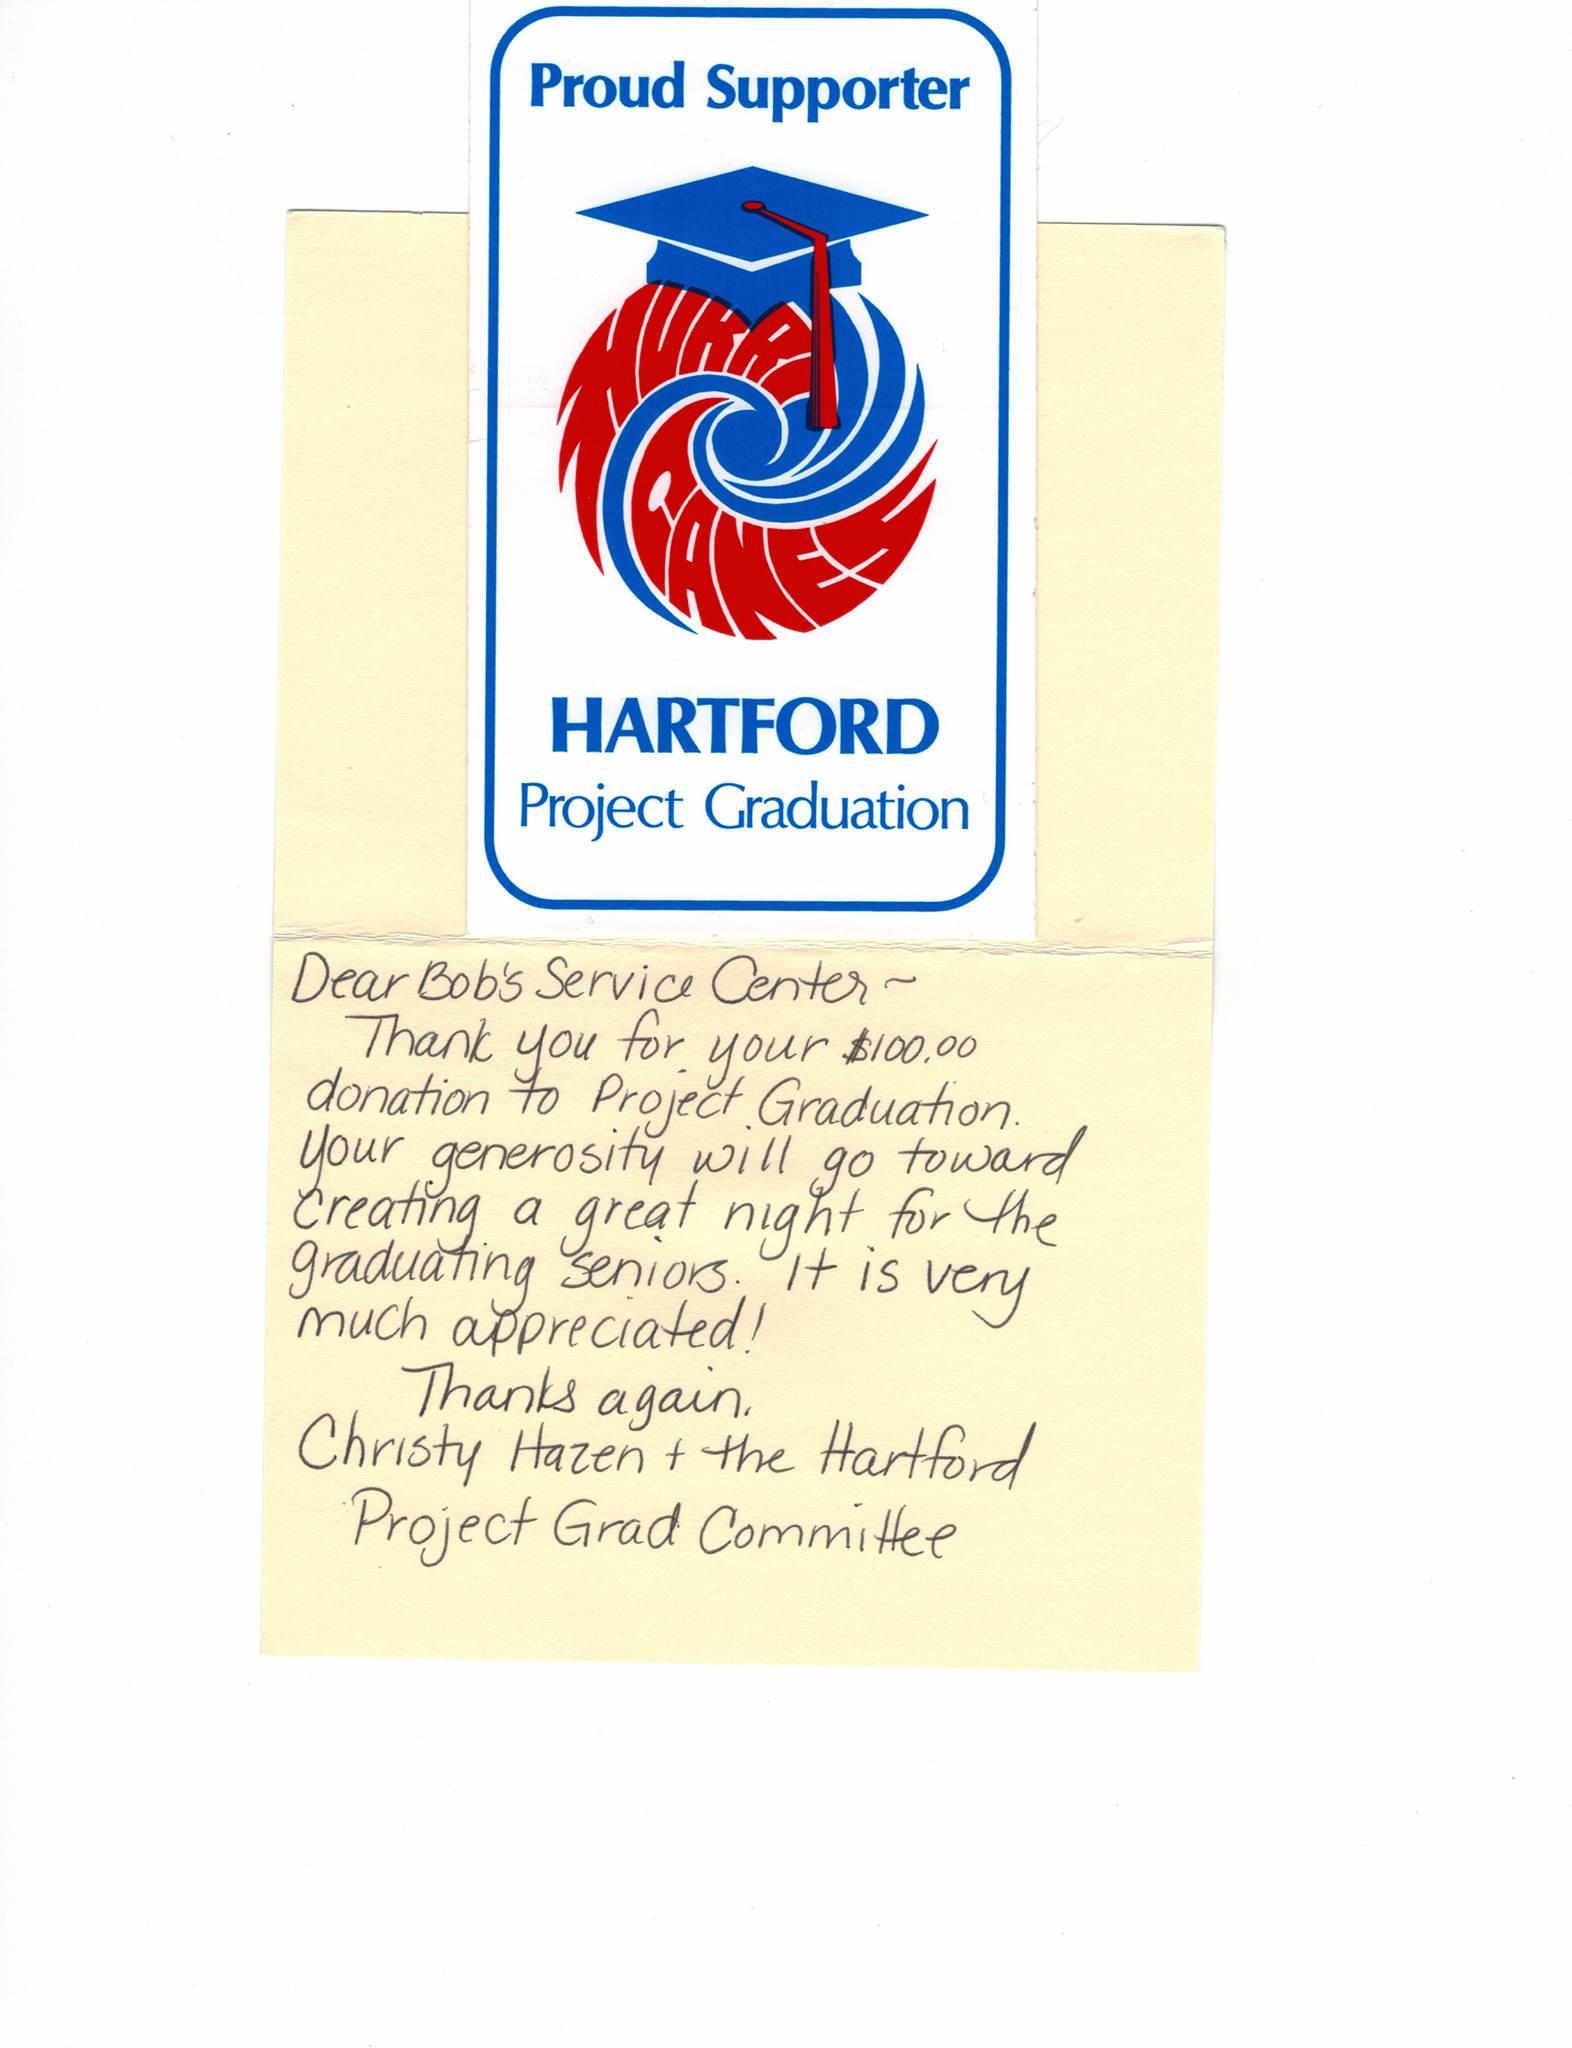 Proud Supporter
HURRI
CANES
HARTFORD
Project Graduation
Dear Bob's Service Center~
Thank you for your $100.00
donation to Project Graduation.
Your generosity will go toward
creating a great night for the
graduating seniors. It is very
much appreciated!
Thanks again,
Christy Hazen + the Hartford
Project Grad Committee